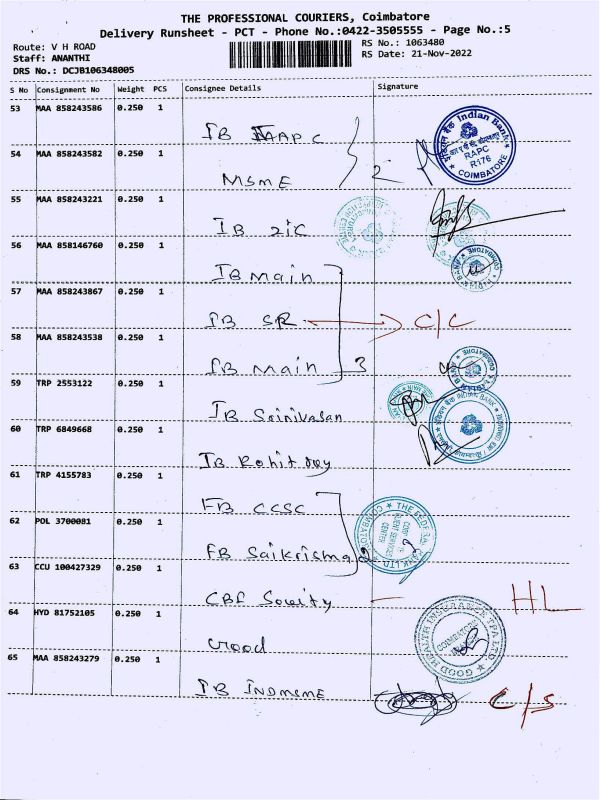 THE PROFESSIONAL COURIERS, Coimbatore
Delivery Runsheet - PCT - Phone No.:0422-3505555 - Page No.:5
Route: V H ROAD
RS No.: 1063480
Staff: ANANTHI
RS Date: 21-Nov-2022
DRS No.: DCJB106348005
S No Consignment No Weight PCS Consignee Details Signature
53 MAA 858243586 0.250 1 IB RAPC
54 MAA 858243582 0.250 1 MSME 2
Indian Bank
RAPC
R176
COIMBATORE
55 MAA 858243221 0.250 1 IB ZIC
56 MAA 858146760 0.250 1 IB Main
57 MAA 858243867 0.250 1 IB SR C/C
58 MAA 858243538 0.250 1 IB Main 3
59 TRP 2553122 0.250 1 IB Srinivasan
INDIAN BANK
60 TRP 6849668 0.250 1 IB Rohit dey
61 TRP 4155783 0.250 1 FB CCSC
62 POL 3700081 0.250 1 FB Saikrisma 2
63 CCU 100427329 0.250 1 CBI Sowity HL
64 HYD 81752105 0.250 1 Good
GOOD HEALTH INSURANCE TPA LTD.
COIMBATORE
65 MAA 858243279 0.250 1 IB INDMSME C/S